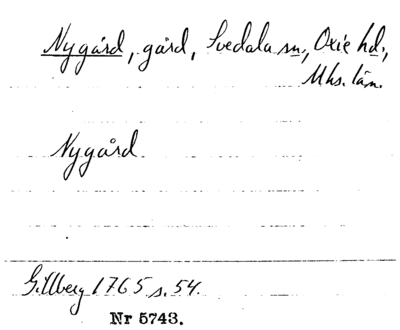 Nygård, gård, Svedala sn., Oxie hd.,
Mhs. län.
Nygård
Gillberg 1765 s. 54.
Nr 5743.